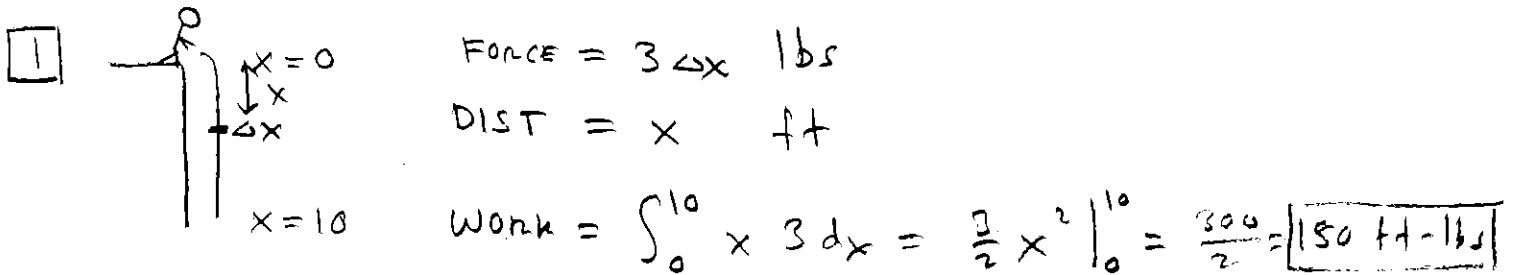 1
x = 0
x
Δx
x = 10
FORCE = 3 Δx lbs
DIST = x ft
WORK = ∫₀¹⁰ x 3 dx = 3/2 x² |₀¹⁰ = 300/2 = 150 ft-lbs